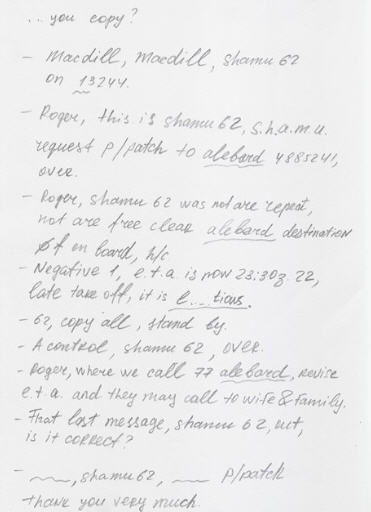 ... you copy?
- Macdill, Macdill, shamu 62
on 13244.
- Roger, this is shamu 62, s.h.a.m.u.
request p/patch to alebard 4885241,
over.
- Roger, shamu 62 was not are repeat,
not are free clear alebard destination
of on board, h/c
- Negative 1, e.t.a. is now 23:30z. 22,
late take off, it is e...tious.
- 62, copy all, stand by.
- A control, shamu 62, over.
- Roger, where we call 77 alebard, revise
e.t.a. and they may call to wife & family.
- That last message, shamu 62, out,
is it correct?
- , shamu 62, p/patch
thank you very much.